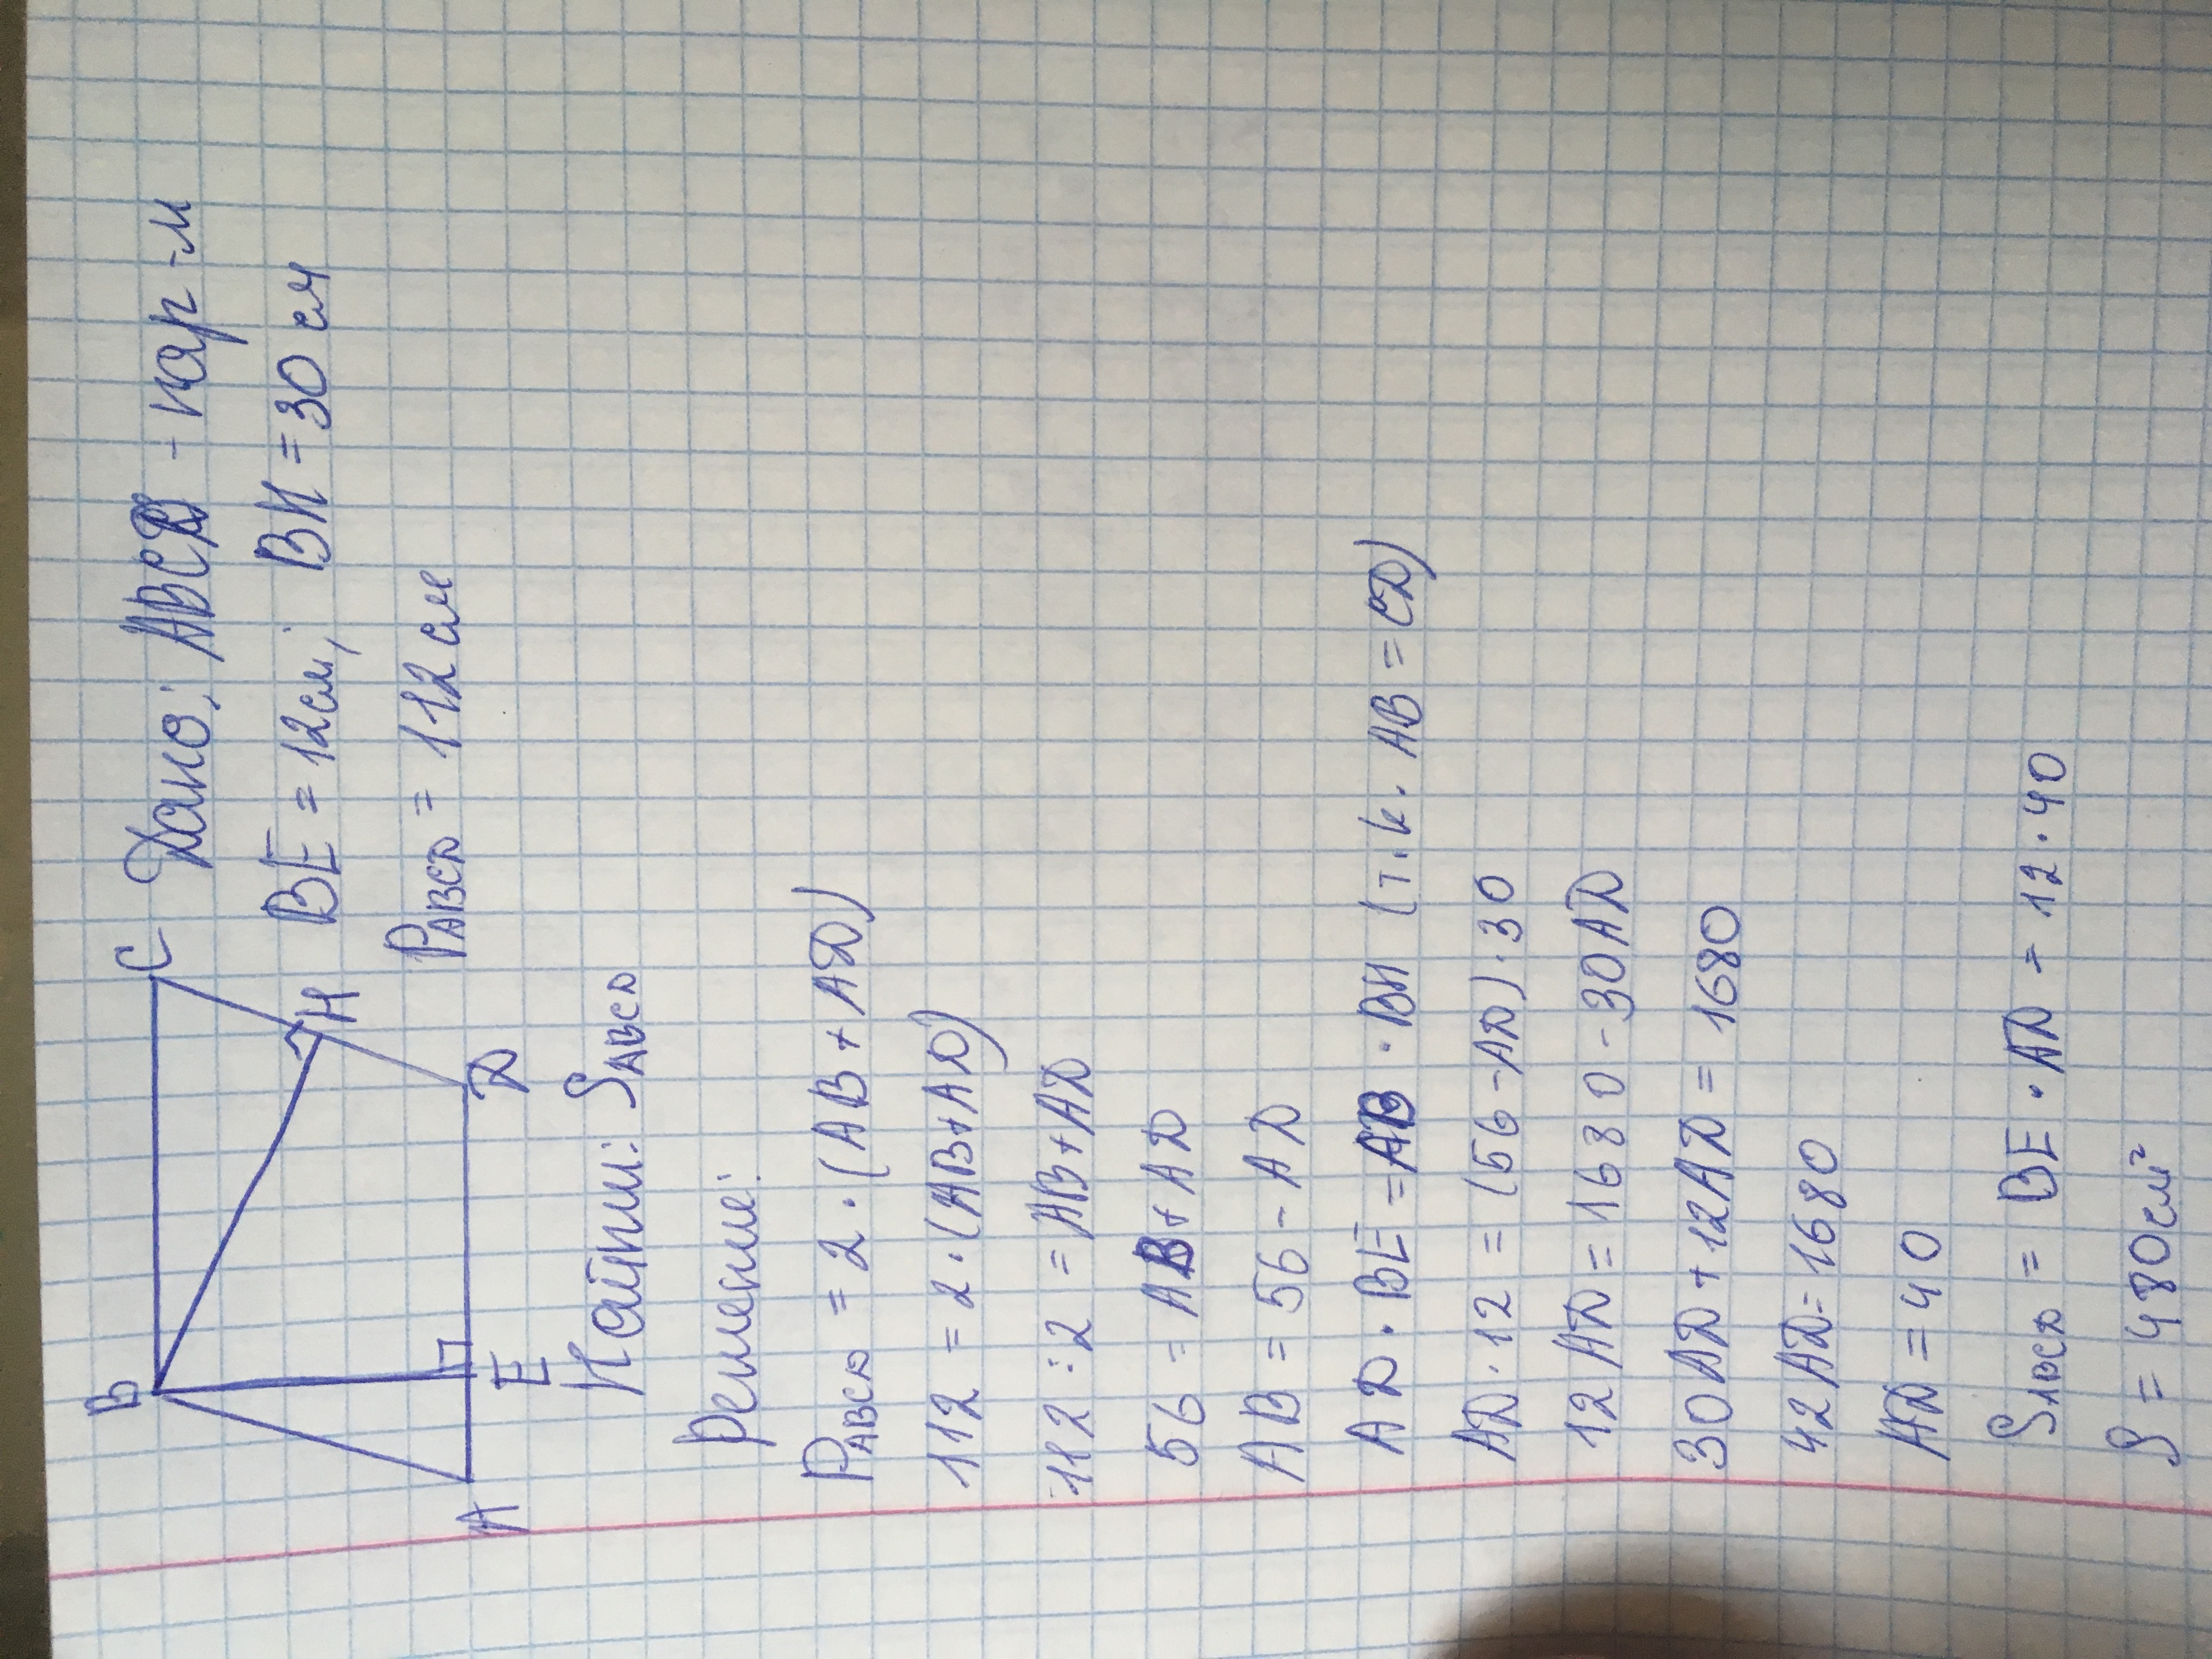 B
C
A
E
D
H
Дано: ABCD - пар-м
BE = 12 см; BH = 30 см
PABCD = 112 см
Найти: SABCD
Решение:
PABCD = 2 · (AB + AD)
112 = 2 · (AB + AD)
112 : 2 = AB + AD
56 = AB + AD
AB = 56 - AD
AD · BE = AB · BH (т.к. AB = CD)
AD · 12 = (56 - AD) · 30
12 AD = 1680 - 30AD
30AD + 12AD = 1680
42AD = 1680
AD = 40
SABCD = BE · AD = 12 · 40
S = 480 см²